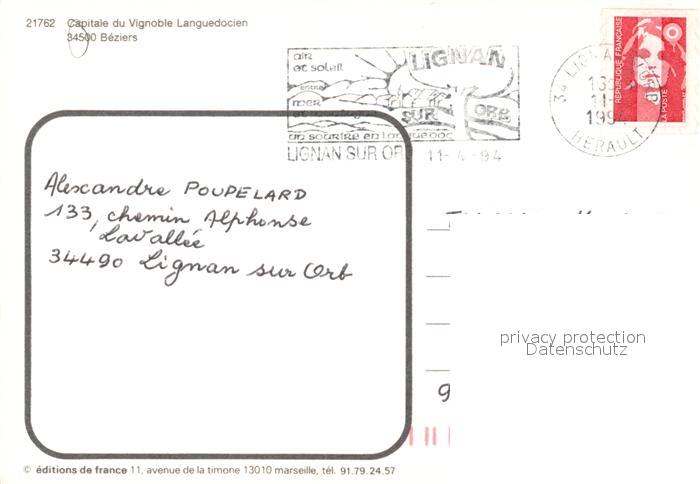 21762 Capitale du Vignoble Languedocien
34500 Béziers
air
et soleil
entre
mer
et montagne
un sourire en languedoc
LIGNAN
SUR ORB
LIGNAN SUR OR 11-4-94
34 LIGNA
11-
1994
HERAULT
REPUBLIQUE FRANÇAISE
LA POSTE
Alexandre POUPELARD
133, chemin Alphonse
Lavallée
34490 Lignan sur Orb
privacy protection
Datenschutz
9
© éditions de france 11, avenue de la timone 13010 marseille, tél. 91.79.24.57